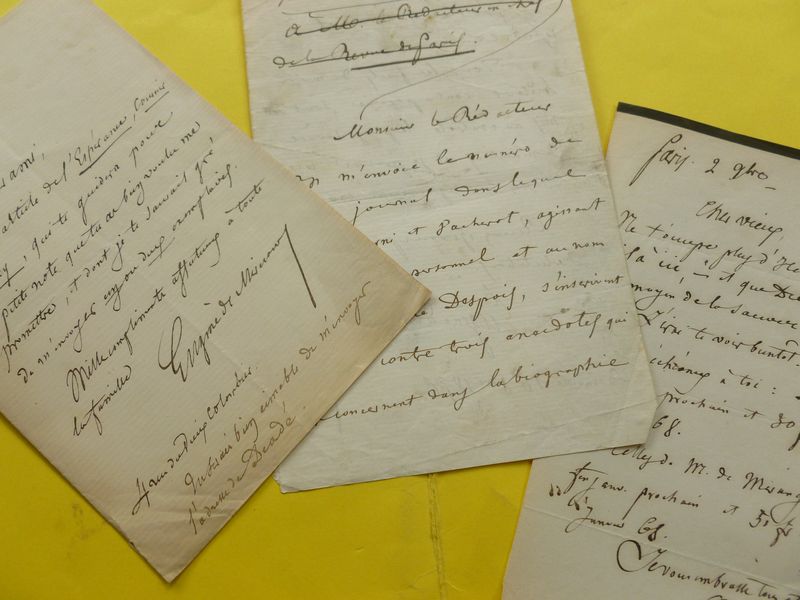 ami,
article de l'Espérance, Courrier
, qui te guidera pour
petite note que tu as bien voulu me
promettre, et dont je te saurais gré
de m'envoyer un ou deux exemplaires.
Mille compliments affectueux à toute
la famille
Eugène de Mirecourt
4 rue du Vieux Colombier.
Tu serais bien aimable de m'envoyer
l'adresse de
à M. le Rédacteur en chef
de la Revue de Paris.
Monsieur le Rédacteur
m'envoie le numéro de
journal dans lequel
et Pacherot, agissant
personnel et au nom
Despois, s'inscrivent
contre trois anecdotes qui
concernent dans la biographie
Paris. 2 9bre
Cher vieux,
Ne t'occupe plus d'
là ici, et que
moyen de la
J'irai te voir bientôt.
à toi :
prochain et 30
68.
Celles de M. de
1er janv. prochain et 5
janvier 68.
Je vous embrasse tous